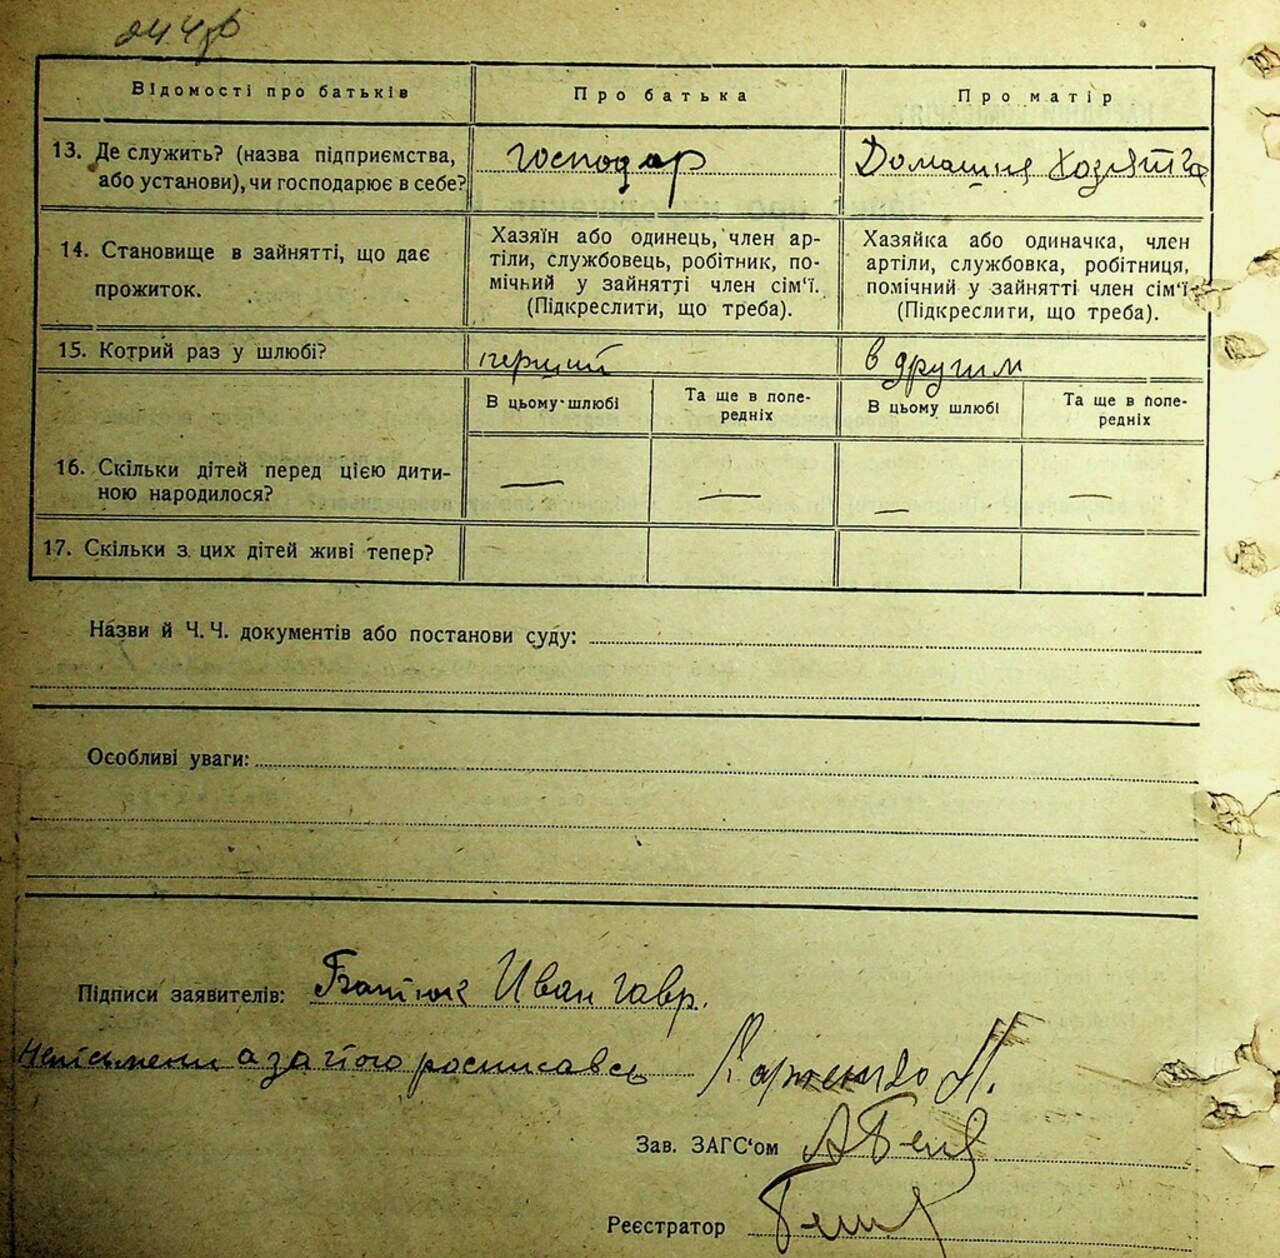 Відомості про батьків
Про батька
Про матір
13. Де служить? (назва підприємства,
або установи), чи господарює в себе?
Господар
Домашня Хозяйка
14. Становище в зайнятті, що дає
прожиток.
Хазяїн або одинець, член ар-
тіли, службовець, робітник, по-
мічный у зайнятті член сім'ї.
(Підкреслити, що треба).
Хазяйка або одиначка, член
артіли, службовка, робітниця,
помічний у зайнятті член сім'ї
(Підкреслити, що треба).
15. Котрий раз у шлюбі?
перший
в другим
В цьому шлюбі
Та ще в попе-
редніх
В цьому шлюбі
Та ще в попе-
редніх
16. Скільки дітей перед цією дити-
ною народилося?
—
—
—
—
17. Скільки з цих дітей живі тепер?
Назви й Ч. Ч. документів або постанови суду:
Особливі уваги:
Підписи заявителів: Иван Гавр.
а за його росписавсь
Зав. ЗАГС'ом
Реєстратор